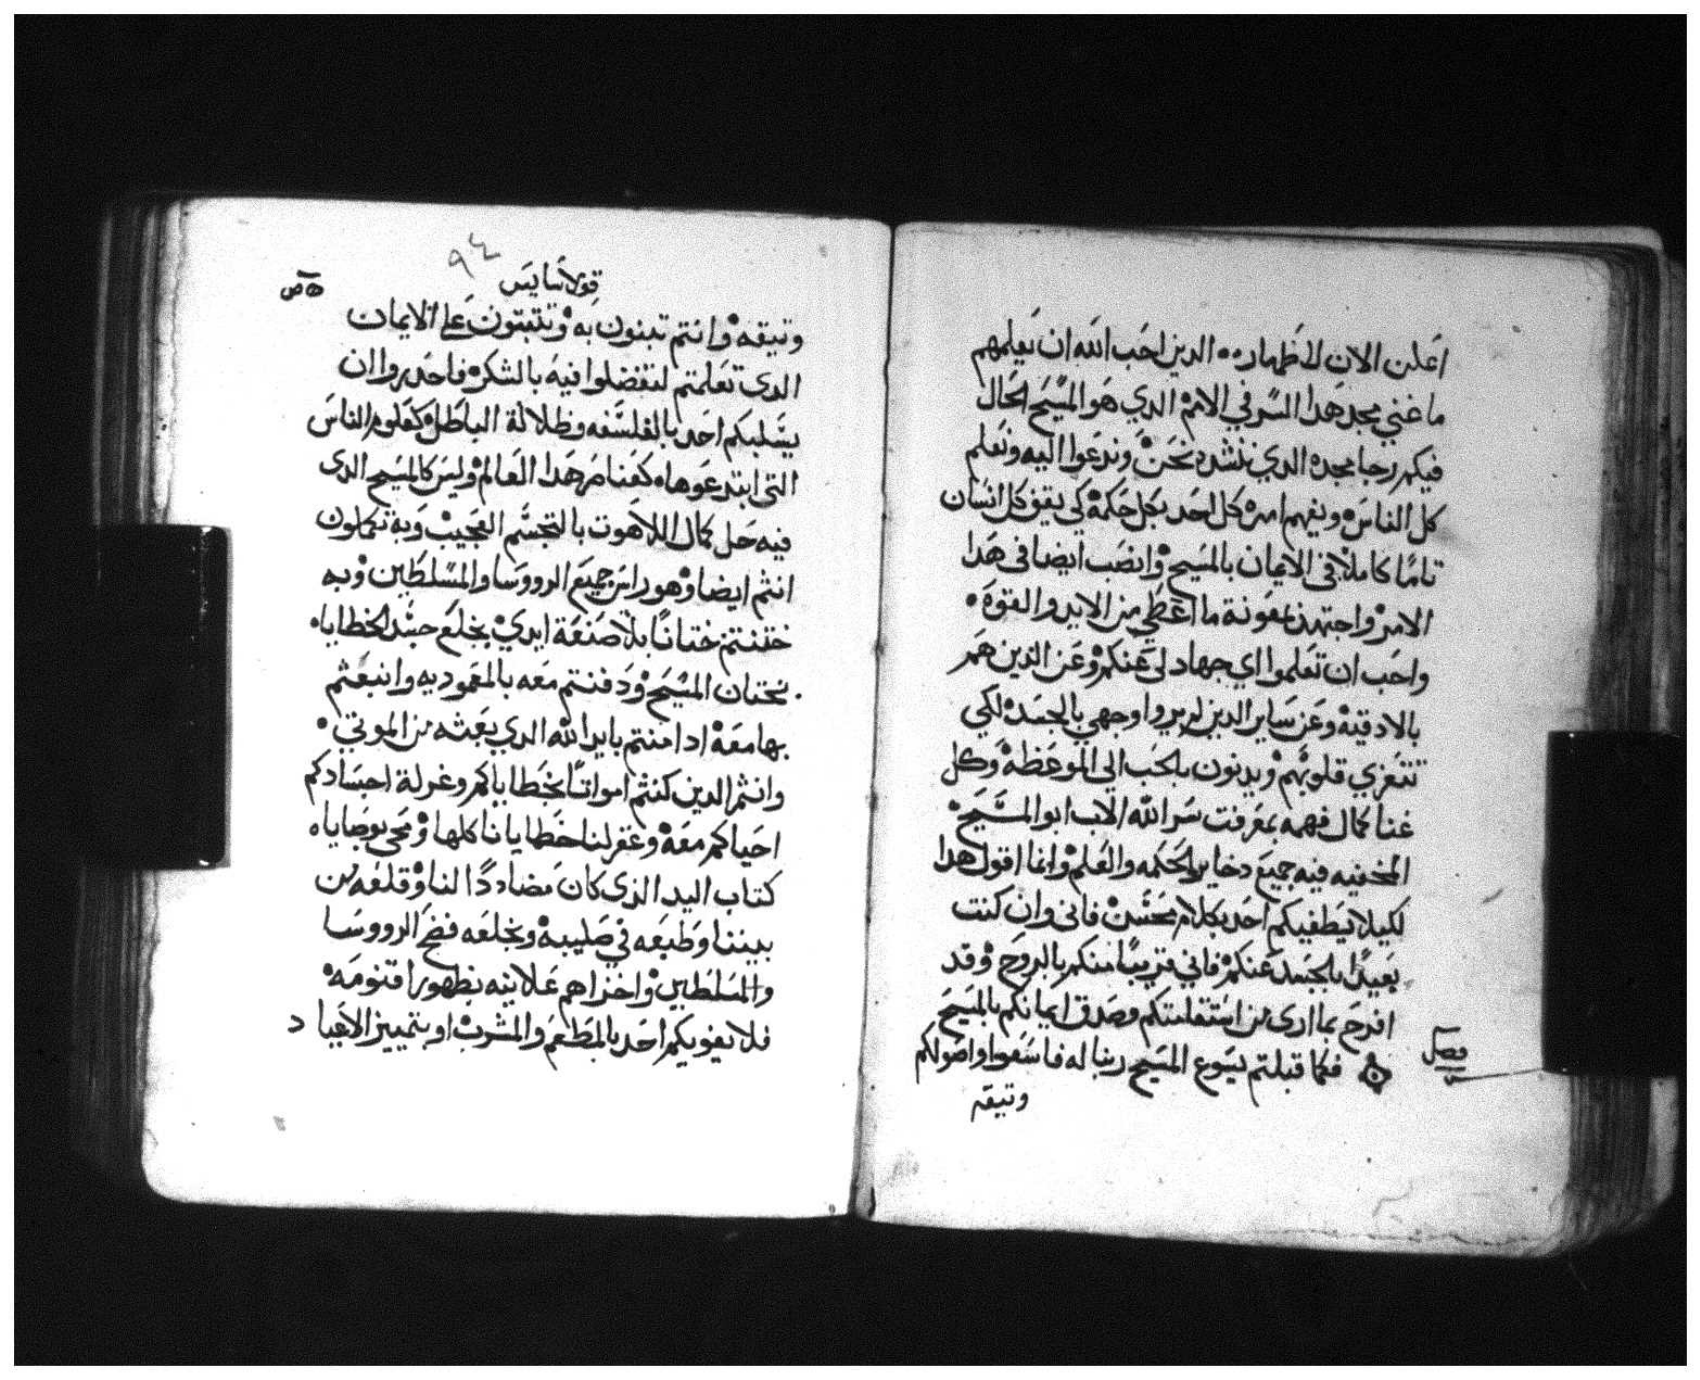 اعلن الان للاظهار٠٠ الدين احب الله ان يعلمهم
ما غني مجد هدا السر في الامم الدي هو المسيح الحال
فيكم رجا مجده الدي ننشد نحن وندعوا اليه ونعلم
كل الناس ونفهم امره كل احد بكل حكمة كي يقف كل انسان
تاما كاملا في الايمان بالمسيح وانصب ايضا في هدا
الامر واجتهد بمعونة ما اعطي من الايد والقوة٠
واحب ان تعلموا اي جهاد لي عنكم وعن الدين هم
بالادقيه وعن ساير الدين لم يروا وجهي بالجسد لكي
تتعزي قلوبهم ويدنون بالحب الي الموعظة وكل
غنا كمال فهمه بمعرفت سر الله الاب ابو المسيح
المخفيه فيه جميع دخاير الحكمه والعلم وانما اقول هدا
لكيلا يطغيكم احد بكلام محسن فاني وان كنت
بعيدا بالجسد عنكم فاني قريبا منكم بالروح وقد
افرح بما اري من استقامتكم وصدق ايمانكم بالمسيح
فصل
فكما قبلتم يسوع المسيح ربنا له فاسعوا واصولكم
وتيقه
٩٤
قولاسايس
وتيقه وانتم تبنون به وتتبتون علي الايمان
الدي تعلمتم لتفضلوا فيه بالشكر فاحدروا ان
يسلبكم احد بالفلسفه وظلالة الباطل كعلوم الناس
التي ابتدعوها٠ كعنا من هدا العالم وليس كالمسيح الدي
فيه حل كمال اللاهوت بالتجسم العجيب وبه تكملون
انتم ايضا وهو راس جميع الرووسا والمسلطين وبه
ختنتم ختانا بلا صنعة ايدي بخلع جسد الخطايا٠
بختان المسيح ودفنتم معه بالمعموديه وانبعثتم
بها معه ادا امنتم بايد الله الدي بعثه من الموتي٠
وانتم الدين كنتم امواتا بخطاياكم وغرلة اجسادكم
احياكم معه وغفر لنا خطايانا كلها ومحي بوصاياه
كتاب اليد الذي كان مضاددا لنا وقلعه من
بيننا وطبعه في صليبه وبخلعه فضح الرووسا
والمسلطين واخزاهم علانيه بظهور اقنومه
فلا يغويكم احد بالمطعم والمشرب او بتمييز الاعياد